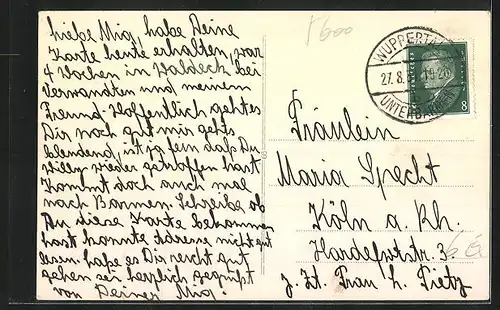 Liebe Mia, habe Deine
Karte heute erhalten, war
4 Wochen in Waldeck bei
Verwandten und meinem
Freund. Hoffentlich geht es
Dir noch gut mir gehts
blendend, ist ja fein daß Du
Willy wieder getroffen hast
Kommt doch auch mal
nach Barmen. Schreibe ob
Du diese Karte bekommen
hast konnte Adresse nicht gut
lesen. habe es Dir recht gut
gehen sei herzlich gegrüßt
von Deiner Mia.
WUPPERTAL
27.8. 19-20
UNTERBARMEN
8
Fräulein
Maria Specht
Köln a. Rh.
Hardefuststr. 3
z. Zt. Frau L. Tietz